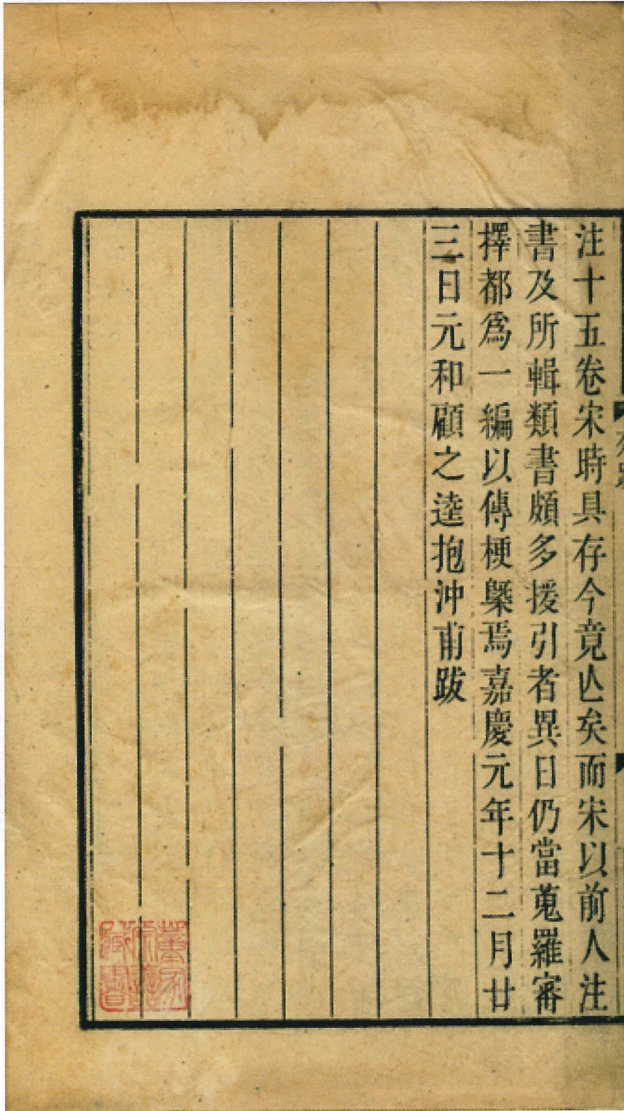 注十五卷宋時具存今竟亾矣而宋以前人注
書及所輯類書頗多援引者異日仍當蒐羅審
擇都爲一編以傳梗槩焉嘉慶元年十二月廿
三日元和顧之逵抱沖甫跋